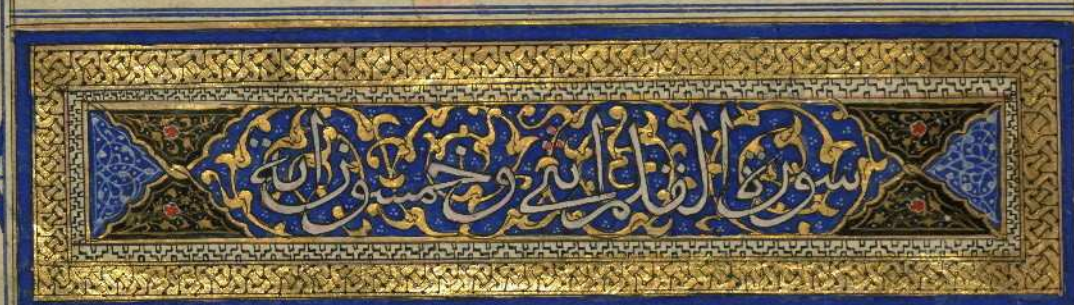 سورة القلم اثنى وخمسون اية